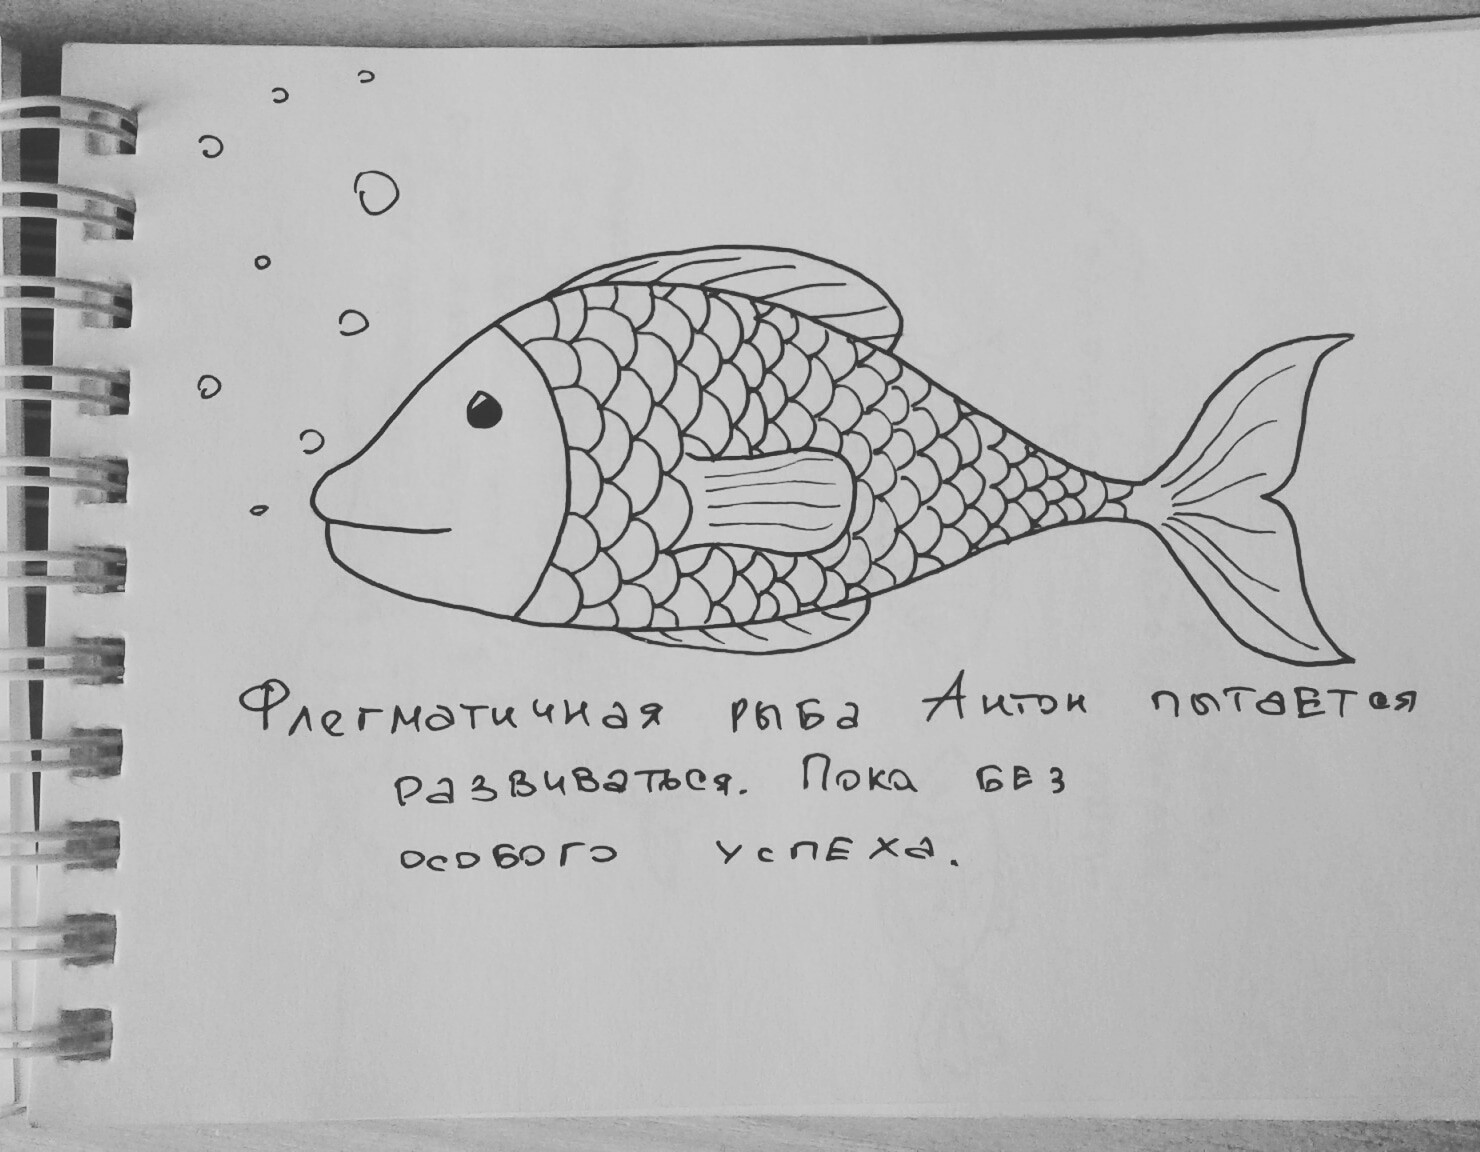 Флегматичная рыба Антон пытается
развиваться. Пока без
особого успеха.